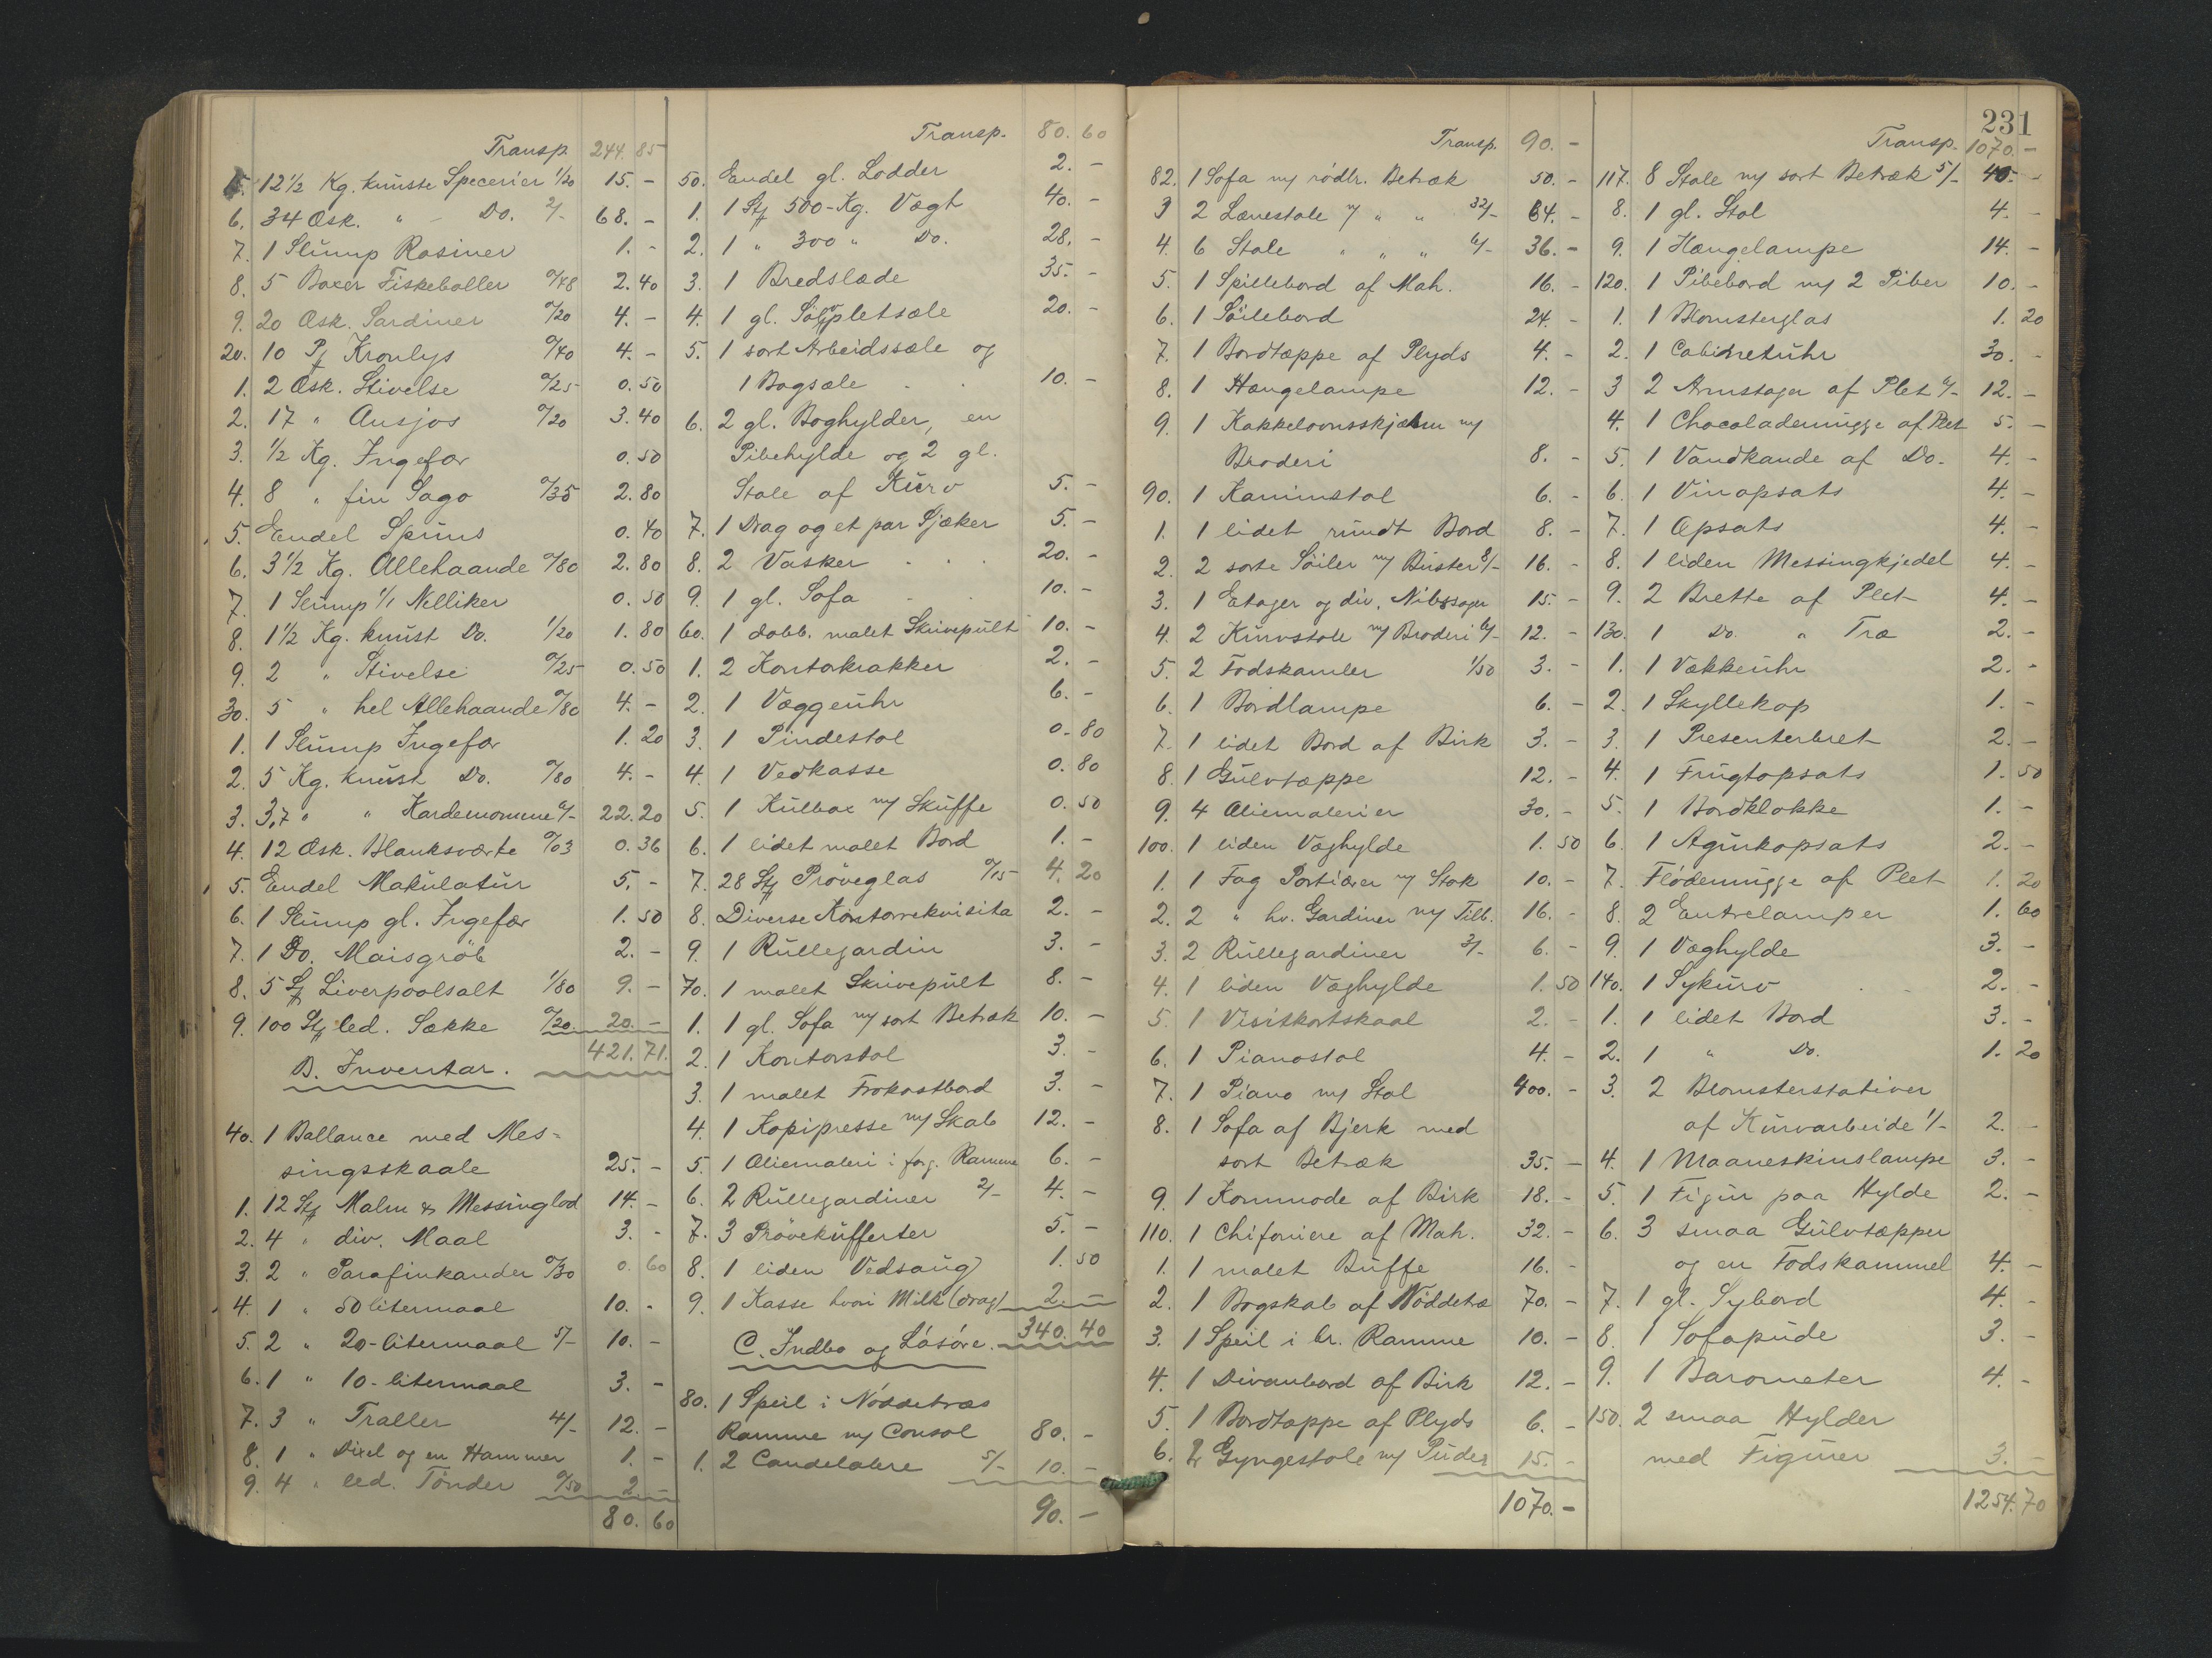 Transp. 244. 85
15. 12 1/2 Kg. knuste Specerier 1/20 15. -
6. 34 Æsk. " - Do. 2/- 68. -
7. 1 Slump Rosiner 1. -
8. 5 Boxer Fiskeboller 0/48 2. 40
9. 20 Æsk. Sardiner 0/20 4. -
20. 10 Pj Kronlys 0/40 4. -
1. 2 Æsk. Stivelse 0/25 0. 50
2. 17 " Ansjos 0/20 3. 40
3. 1/2 Kg. Ingefær 0. 50
4. 8 " fin Sago 0/35 2. 80
5. Endel Spuns 0. 40
6. 3 1/2 Kg. Allehaande 0/80 2. 80
7. 1 Slump 1/1 Nelliker 0. 50
8. 1 1/2 Kg. knust Do. 1/20 1. 80
9. 2 " Stivelse 0/25 0. 50
30. 5 " hel Allehaande 0/80 4. -
1. 1 Slump Ingefær 1. 20
2. 5 Kg. knust Do. 0/80 4. -
3. 3,7 " " Kardemomme 6/- 22. 20
4. 12 Æsk. Blanksværte 0/03 0. 36
5. Endel Makulatur 5. -
6. 1 Slump gl. Ingefær 1. 50
7. 1 Do. Maisgrøb 2. -
8. 5 Sj Liverpoolsalt 1/80 9. -
9. 100 Stj led. Sække 0/20 20. -
421. 71.
B. Inventar.
40. 1 Ballance med Mes-
singsskaale 25. -
1. 12 Stj Malm & Messinglod 14. -
2. 4 " div. Maal 3. -
3. 2 " Parafinkander 0/30 0. 60
4. 1 " 50 litermaal 10. -
5. 2 " 20-litermaal 5/- 10. -
6. 1 " 10-litermaal 3. -
7. 3 " Traller 4/- 12. -
8. 1 " Dixel og en Hammer 1. -
9. 4 " led. Tønder 0/50 2. -
80. 60
Transp. 80. 60
50. Endel gl. Lodder 2. -
1. 1 Stj 500-Kg. Vægt 40. -
2. 1 " 300 " Do. 28. -
3. 1 Bredslæde 35. -
4. 1 gl. Sølvpletsæle 20. -
5. 1 sort Arbeidssæle og
1 Bogsæle 10. -
6. 2 gl. Boghylder, en
Pibehylde og 2 gl.
Stole af Kurv 5. -
7. 1 Drag og et par Sjæker 5. -
8. 2 Vasker 20. -
9. 1 gl. Sofa 10. -
60. 1 dobb. malet Skrivepult 10. -
1. 2 Kontorkrakker 2. -
2. 1 Væggeuhr 6. -
3. 1 Pindestol 0. 80
4. 1 Vedkasse 0. 80
5. 1 Kulbox m/ Skuffe 0. 50
6. 1 lidet malet Bord 1. -
7. 28 Stj Prøveglas 0/15 4. 20
8. Diverse Kontorrekvisita 2. -
9. 1 Rullegardin 3. -
70. 1 malet Skrivepult 8. -
1. 1 gl. Sofa m/ sort Betræk 10. -
2. 1 Kontorstol 3. -
3. 1 malet Frokostbord 3. -
4. 1 Kopipresse m/ Skab 12. -
5. 1 Oliemaleri i forg. Ramme 6. -
6. 2 Rullegardiner 2/- 4. -
7. 3 Prøvekufferter 5. -
8. 1 liden Vedsaug 1. 50
9. 1 Kasse hvori Milk (drag) 2. -
340. 40
C. Indbo og Løsøre.
80. 1 Speil i Nøddetræs
Ramme m/ Consol 80. -
1. 2 Candelabere 5/- 10. -
90. -
231
Transp. 90. -
82. 1 Sofa m/ rødbr. Betræk 50. -
3 2 Lænestole m/ " " 32/- 64. -
4. 6 Stole " " " 6/- 36. -
5. 1 Spillebord af Mah. 16. -
6. 1 Søilebord 24. -
7. 1 Bordtæppe af Plyds 4. -
8. 1 Hængelampe 12. -
9. 1 Kakkelovnsskjærm m/
Broderi 8. -
90. 1 Kaminstol 6. -
1. 1 lidet rundt Bord 8. -
2. 2 sorte Søiler m/ Buster 8/- 16. -
3. 1 Etager og div. Nibssager 15. -
4. 2 Kurvstole m/ Broderi 6/- 12. -
5. 2 Fodskamler 1/50 3. -
6. 1 Bordlampe 6. -
7. 1 lidet Bord af Birk 3. -
8. 1 Gulvtæppe 12. -
9. 4 Oliemalerier 30. -
100. 1 liden Væghylde 1. 50
1. 1 Fag Portiærer m/ Stok 10. -
2. 2 " hv. Gardiner m/ Tilb. 16. -
3. 2 Rullegardiner 3/- 6. -
4. 1 liden Væghylde 1. 50
5. 1 Visitkortskaal 2. -
6. 1 Pianostol 4. -
7. 1 Piano m/ Stol 400. -
8. 1 Sofa af Bjerk med
sort Betræk 35. -
9. 1 Kommode af Birk 18. -
110. 1 Chifoniere af Mah. 32. -
1. 1 malet Buffe 16. -
2. 1 Bogskab af Nøddetræ 70. -
3. 1 Speil i br. Ramme 10. -
4. 1 Divanbord af Birk 12. -
5. 1 Bordtæppe af Plyds 6. -
6. 2 Gyngestole m/ Puder 15. -
1070. -
Transp. 1070. -
117. 8 Stole m/ sort Betræk 5/- 40. -
8. 1 gl. Stol 4. -
9. 1 Hængelampe 14. -
120. 1 Pibebord m/ 2 Piber 10. -
1. 1 Blomsterglas 1. 20
2. 1 Cabinetuhr 30. -
3 2 Armstager af Plet 6/- 12. -
4. 1 Chocolademugge af Plet 5. -
5. 1 Vandkande af Do. 4. -
6. 1 Vinopsats 4. -
7. 1 Opsats 4. -
8. 1 liden Messingkjedel 4. -
9. 2 Brette af Plet 4. -
130. 1 Do. " Træ 2. -
1. 1 Vækkeuhr 2. -
2. 1 Skyllekop 1. -
3. 1 Presenterbret 2. -
4. 1 Frugtopsats 1. 50
5. 1 Bordklokke 1. -
6. 1 Agurkopsats 2. -
7. Flødemugge af Plet 1. 20
8. 2 Entrelamper 1. 60
9. 1 Væghylde 3. -
140. 1 Sykurv 2. -
1. 1 lidet Bord 3. -
2. 1 " Do. 1. 20
3. 2 Blomsterstativer
af Kurvarbeide 1/- 2. -
4. 1 Maaneskinslampe 3. -
5. 1 Figur paa Hylde 2. -
6. 3 smaa Gulvtæpper
og en Fodskammel 4. -
7. 1 gl. Sybord 4. -
8. 1 Sofapude 3. -
9. 1 Barometer 4. -
150. 2 smaa Hylder
med Figurer 3. -
1254. 70